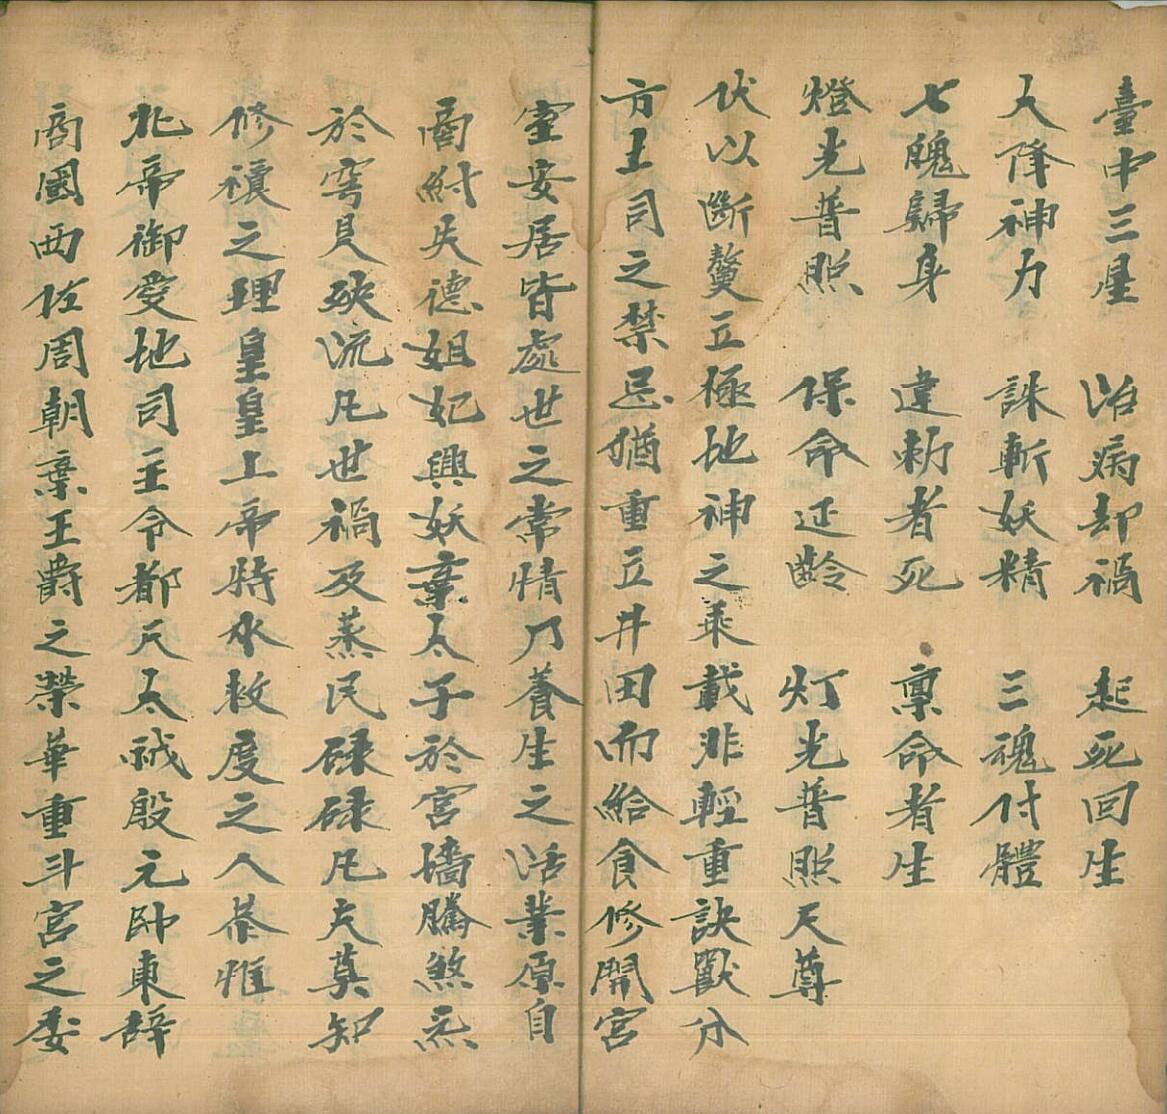 臺中三星　治病却禍　起死回生
人降神力　誅斬妖精　三魂付體
七魄歸身　違勅者死　禀命者生
燈光普照　保命延齡　灯光普照天尊
伏以斷鰲立極地神之乘載非輕重訣獸分
方土司之禁忌猶重立井田而給食修開宮
室安居皆處世之常情乃養生之活業原自
商紂失德妲妃興妖棄太子於宮墻騰煞炁
於穹旻殃流凡世禍及蒸民碌碌凡夫莫知
修禳之理皇皇上帝特水救度之人恭惟
北帝御愛地司主令都天太歲殷元帥東辞
商國西佐周朝棄王爵之榮華重斗宮之委